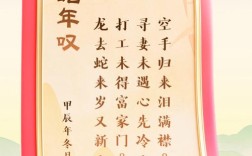 年叹
龙去蛇来岁又新，
打工未得富家门。
寻妻未遇心先冷，
空手归来泪满襟。
甲辰年冬